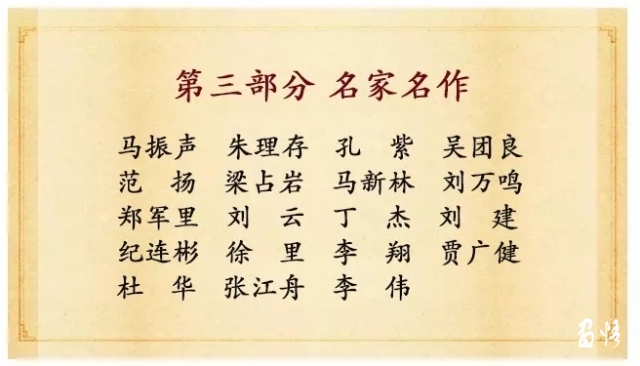 第三部分 名家名作
马振声 朱理存 孔 紫 吴团良
范 扬 梁占岩 马新林 刘万鸣
郑军里 刘 云 丁 杰 刘 建
纪连彬 徐 里 李 翔 贾广健
杜 华 张江舟 李 伟
蜀悟